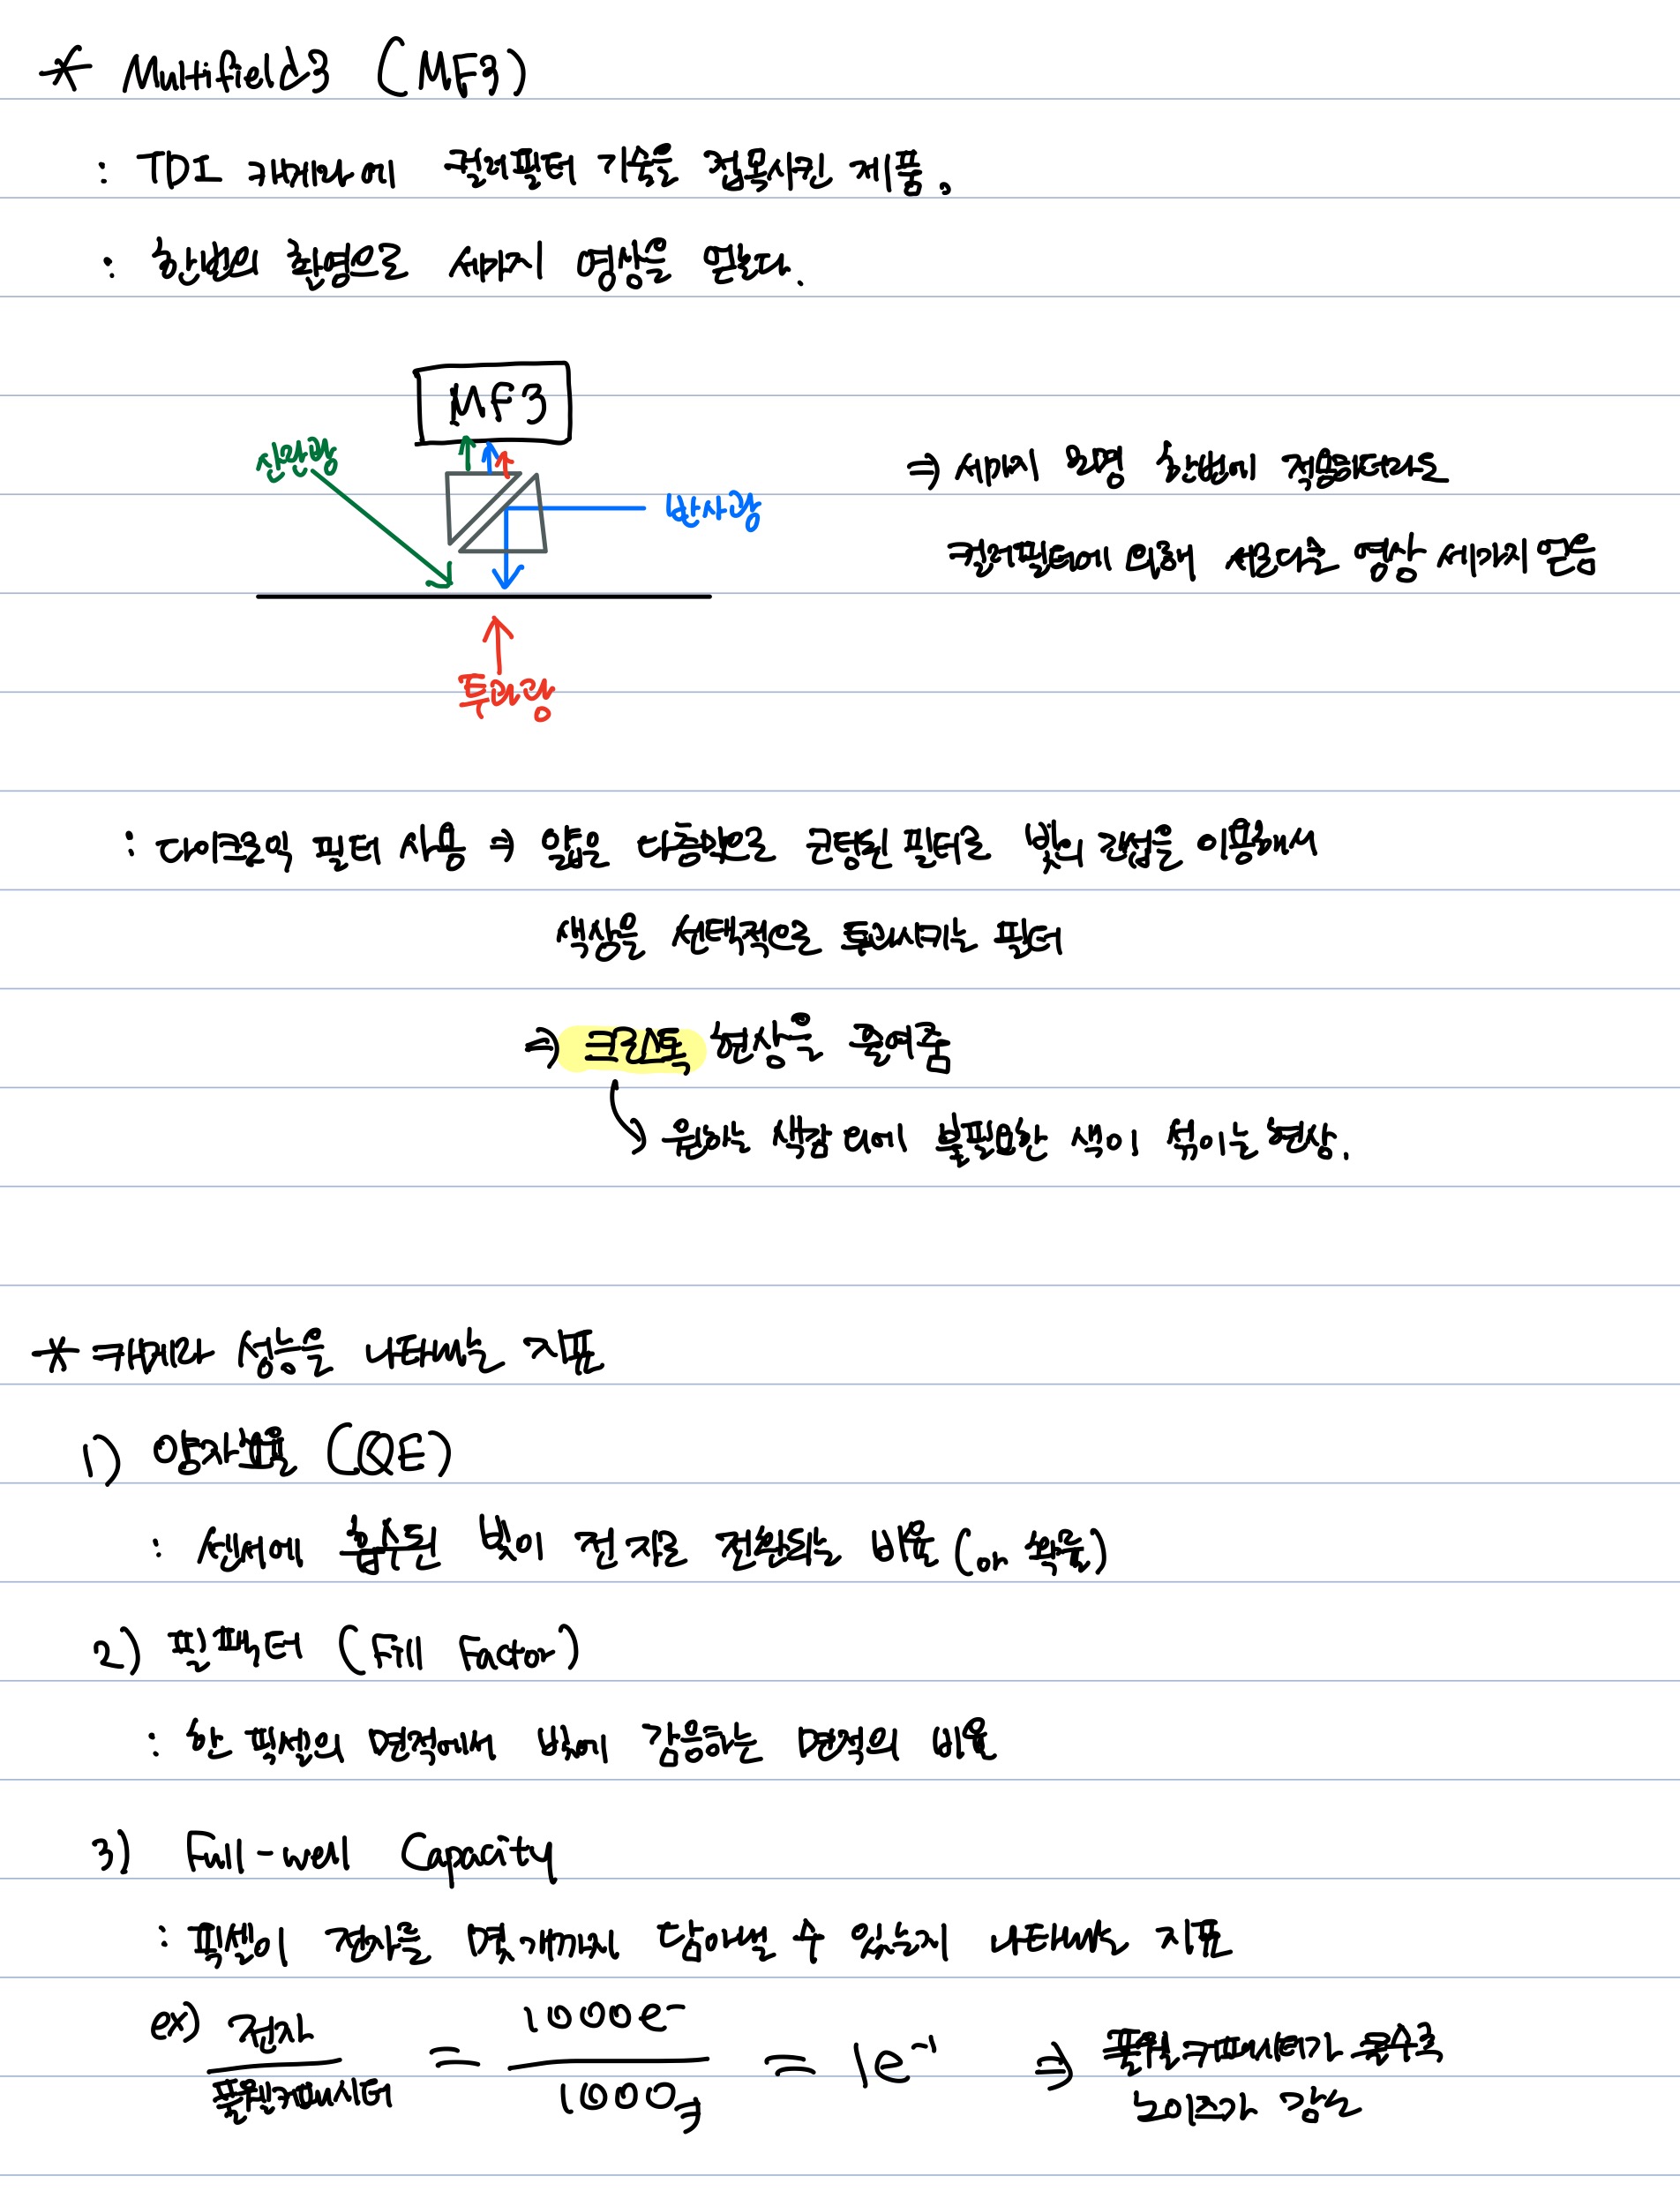 * Multifield3 (MF3)
: TDI 카메라에 컬러필터 기술을 접목시킨 제품.
: 한번의 촬영으로 세가지 영상을 얻는다.
MF3
산란광
⇒ 세가지 조명 한번에 적용하더라도
반사광
컬러필터에 의해 서로다른 영상 세가지 얻음
투과광
: 다이크로익 필터 사용 ⇒ 얇은 다층막으로 코팅된 필터로 빛의 간섭을 이용해서
색상을 선택적으로 투과시키는 필터
⇒ 크로스톡 현상을 줄여줌
원하는 색감 외에 불필요한 색이 섞이는 현상.
* 카메라 성능을 나타내는 지표
1) 양자효율 (QE)
: 센서에 흡수된 빛이 전자로 전환되는 비율 (or 확률)
2) 필팩터 (Fill Factor)
: 한 픽셀의 면적에서 빛에 감응하는 면적의 비율
3) Full-well Capacity
: 픽셀이 전자를 몇개까지 담아낼 수 있는지 나타내는 지표
ex) 전자 / 풀웰커패시터 = 1000e⁻ / 1000 = 1e⁻¹ ⇒ 풀웰커패시터가 클수록
노이즈가 감소